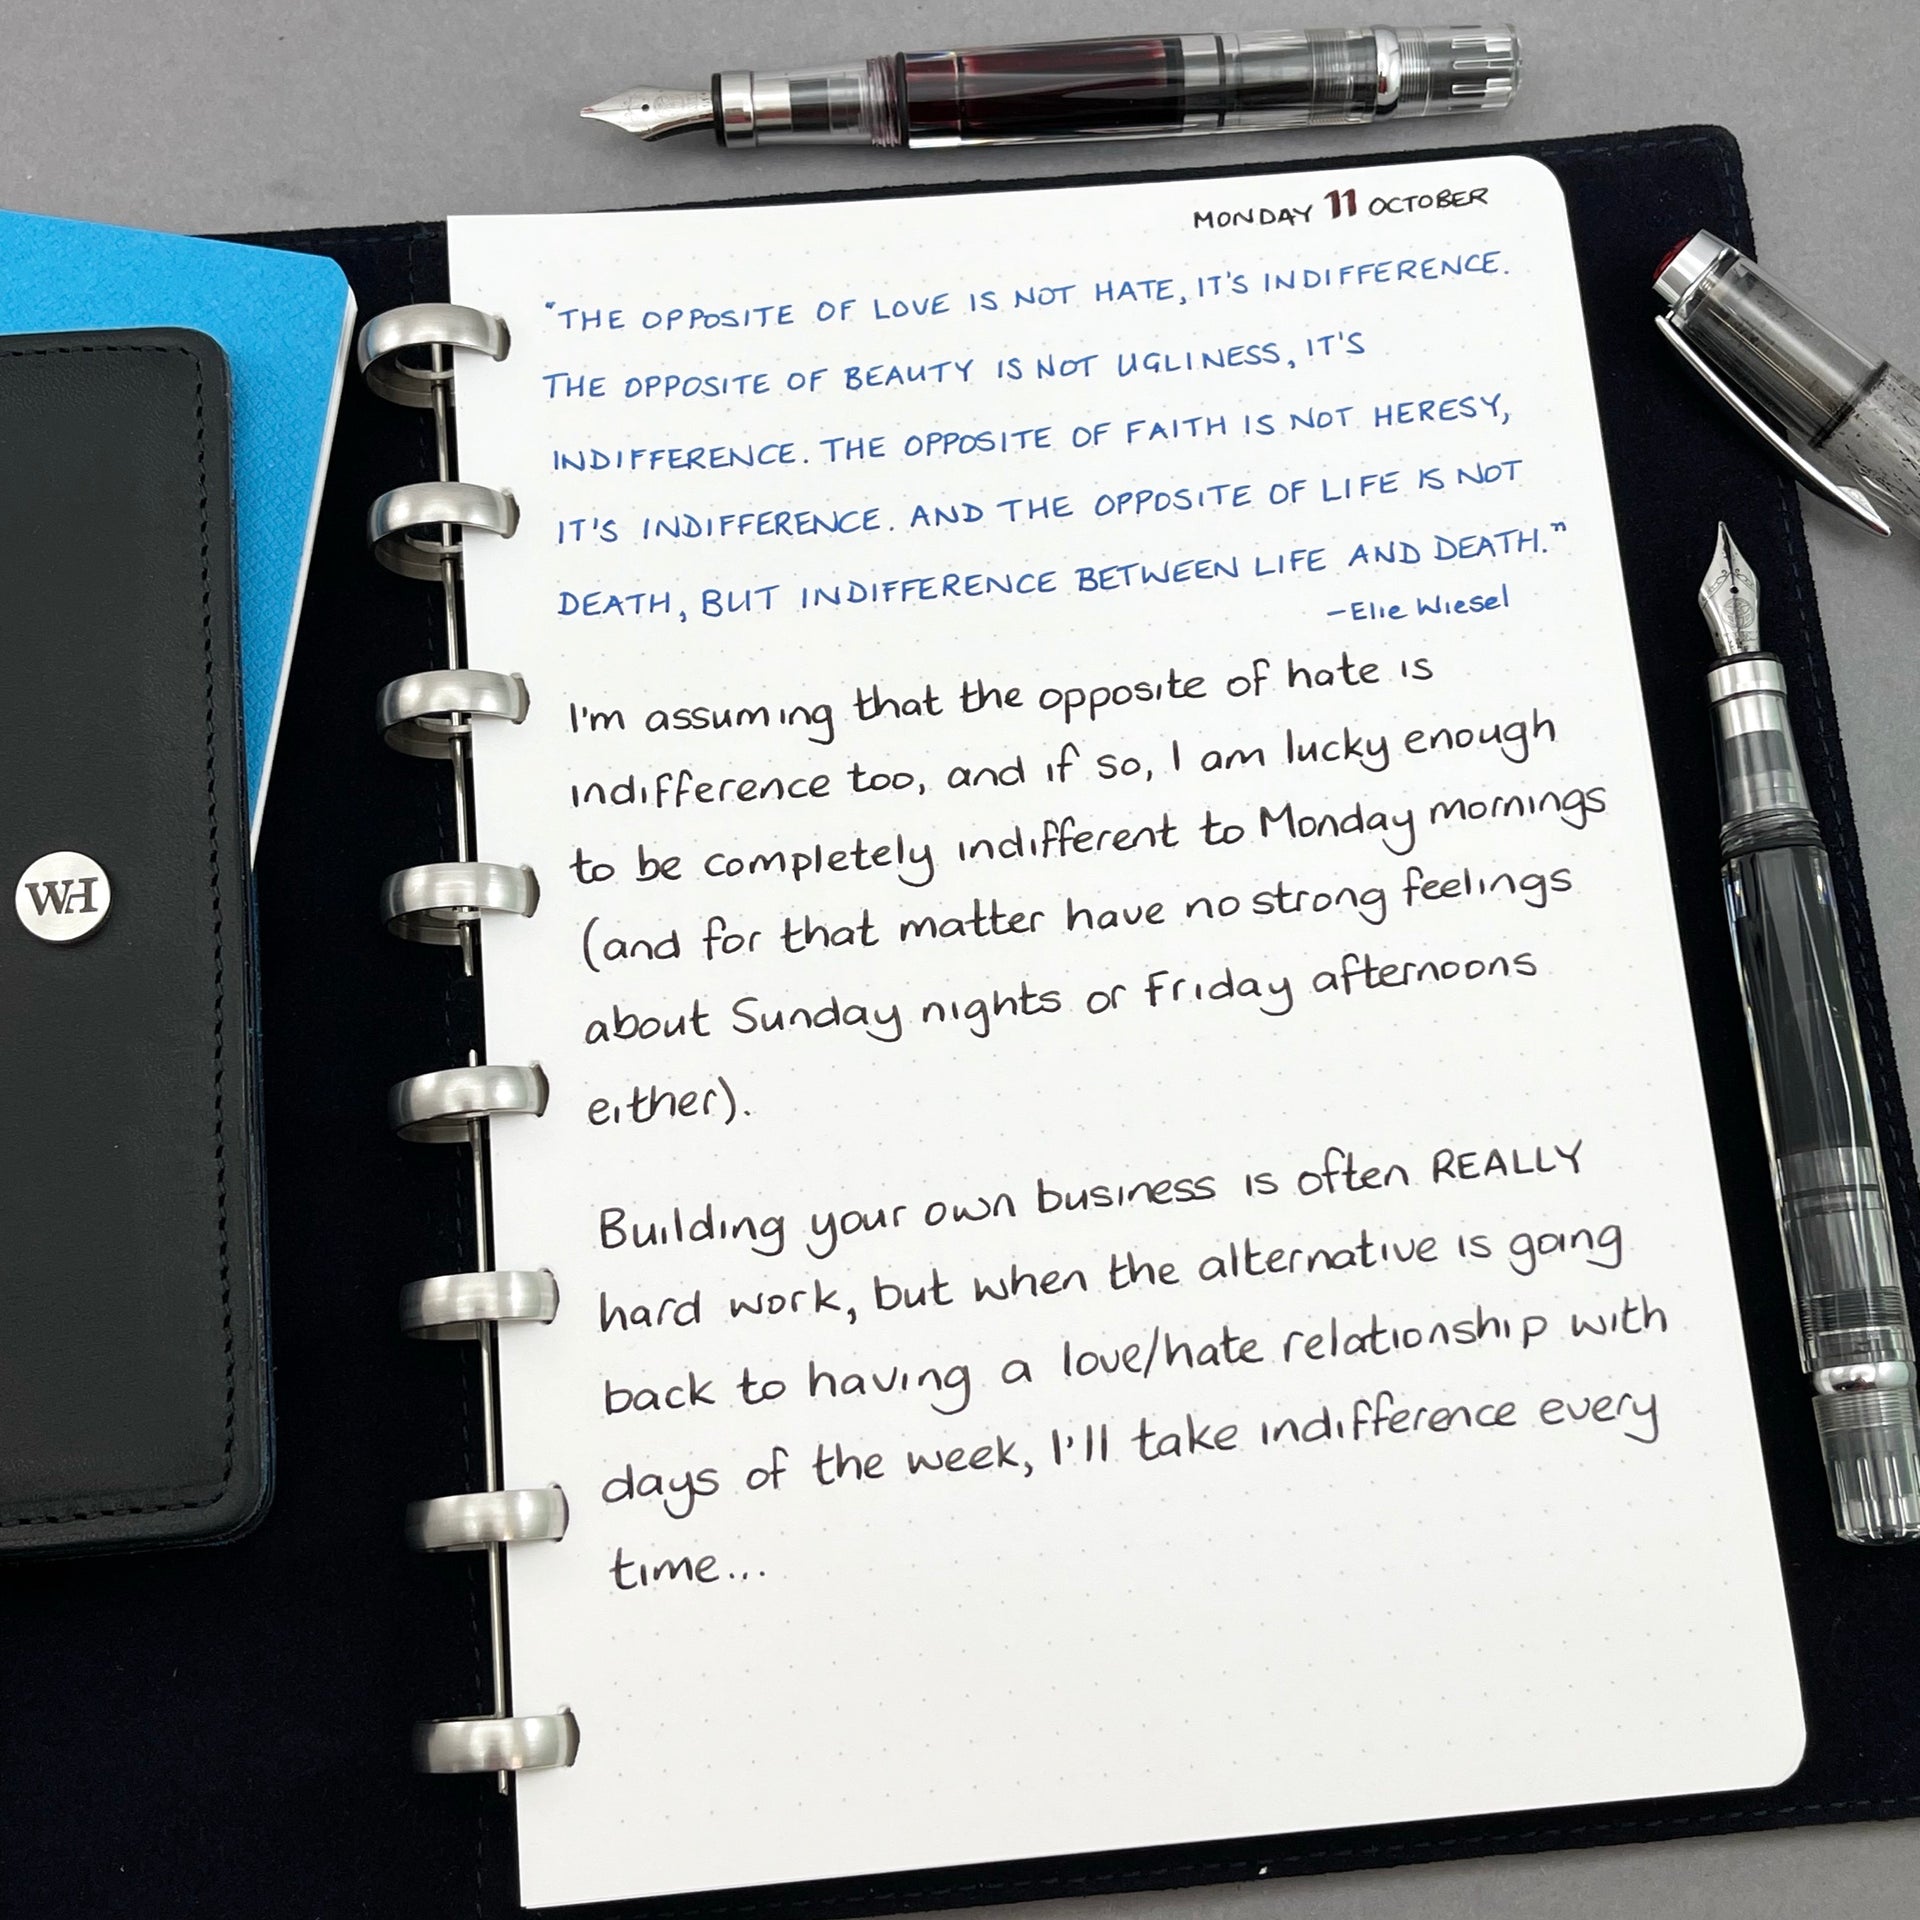 MONDAY 11 OCTOBER
"THE OPPOSITE OF LOVE IS NOT HATE, IT'S INDIFFERENCE.
THE OPPOSITE OF BEAUTY IS NOT UGLINESS, IT'S
INDIFFERENCE. THE OPPOSITE OF FAITH IS NOT HERESY,
IT'S INDIFFERENCE. AND THE OPPOSITE OF LIFE IS NOT
DEATH, BUT INDIFFERENCE BETWEEN LIFE AND DEATH."
–Elie Wiesel
I'm assuming that the opposite of hate is
indifference too, and if so, I am lucky enough
to be completely indifferent to Monday mornings
(and for that matter have no strong feelings
about Sunday nights or Friday afternoons
either).
Building your own business is often REALLY
hard work, but when the alternative is going
back to having a love/hate relationship with
days of the week, I'll take indifference every
time...
WH